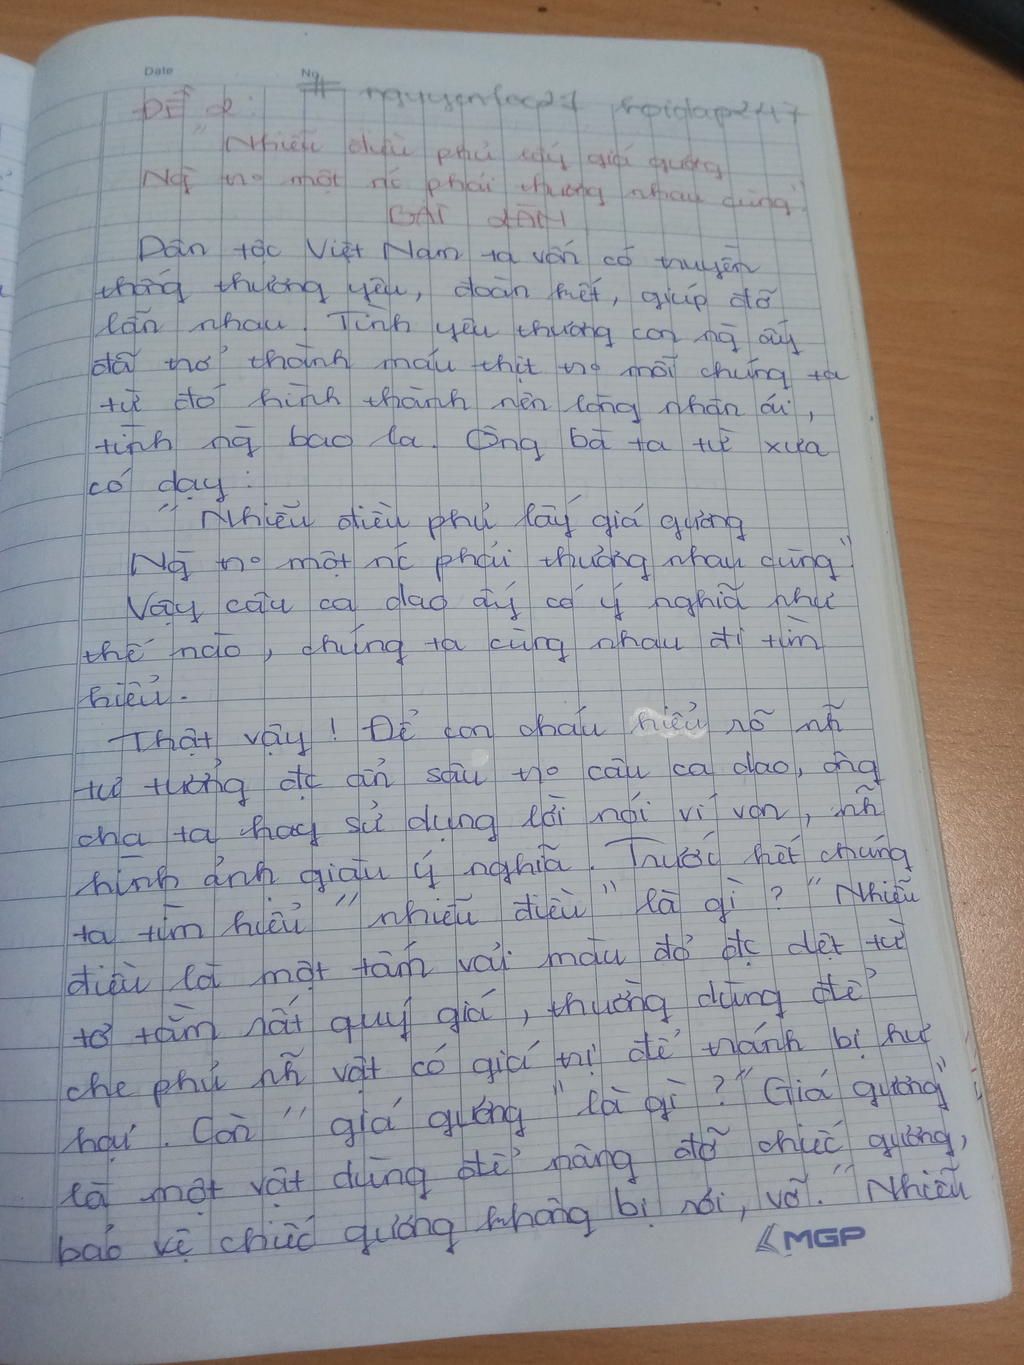 Date
No
# nguyenfoc27 hoidap247
Đề 2:
" Nhiễu điều phủ lấy giá gương
Ng̃ tro một nc phải thương nhau cùng"
BÀI LÀM
Dân tộc Việt Nam ta vốn có truyền
thống thương yêu, đoàn kết, giúp đỡ
lẫn nhau. Tình yêu thương con ng̃ ấy
đã trở thành máu thịt tro mỗi chúng ta
từ đó hình thành nên lòng nhân ái,
tình ng̃ bao la. Ông bà ta từ xưa
có dạy:
" Nhiễu điều phủ lấy giá gương
Ng̃ tro một nc phải thương nhau cùng"
Vậy câu ca dao ấy có ý nghĩa như
thế nào, chúng ta cùng nhau đi tìm
hiểu.
Thật vậy! Để con cháu hiểu rõ nh̃
tư tưởng đc ẩn sâu tro câu ca dao, ông
cha ta hay sử dụng lời nói ví von, nh̃
hình ảnh giàu ý nghĩa. Trước hết chúng
ta tìm hiểu "nhiễu điều" là gì? "Nhiễu
điều là một tấm vải màu đỏ đc dệt từ
tơ tằm rất quý giá, thường dùng để
che phủ nh̃ vật có giá trị để tránh bị hư
hại. Còn "giá gương" là gì? "Giá gương"
là một vật dùng để nâng đỡ chiếc gương,
bảo vệ chiếc gương không bị rơi, vỡ. "Nhiễu
MGP